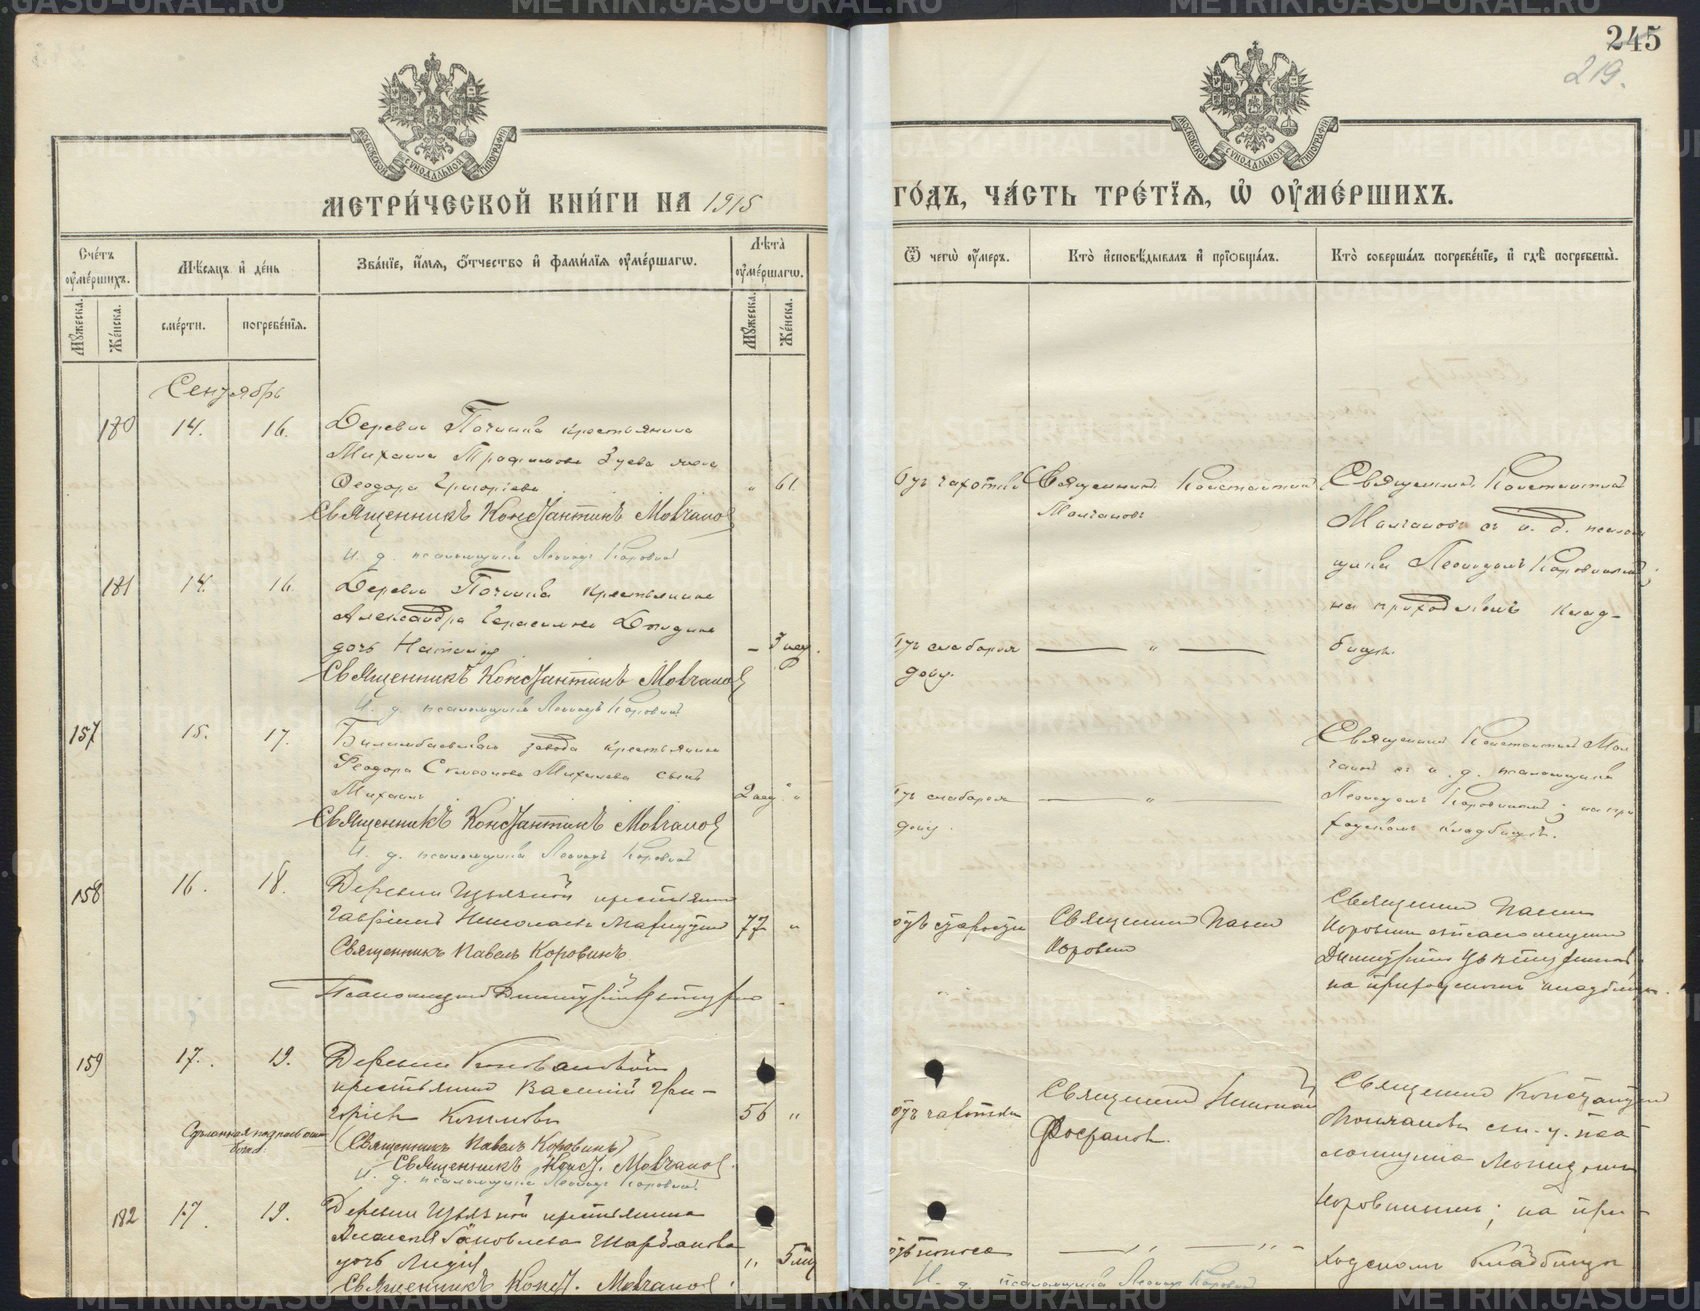 245
219.
МЕТРИ́ЧЕСКОЙ КНИ́ГИ НА 1915
ГО́ДЪ, ЧА́СТЬ ТРЕ́ТЇЯ, Ѡ҆ ОУ҆МЕ́РШИХЪ.
Сче́тъ оу҆ме́ршихъ.
Мѣ́сяцъ и҆ де́нь
Зва́нїе, и҆́мя, ѻ҆́тчество и҆ фами́лїя оу҆ме́ршагѡ.
Лѣ́та оу҆ме́ршагѡ.
Ѿ чегѡ̀ оу҆́меръ.
Кто̀ и҆сповѣ́дывалъ и҆ прїѡбща́лъ.
Кто̀ соверша́лъ погребе́нїе, и҆ гдѣ̀ погребены̀.
Му́жеска.
Же́нска.
сме́рти.
погребе́нїя.
Му́жеска.
Же́нска.
Сентябрь
180 14. 16. Деревни Починка крестьянина
Михаила Трофимова Зуева жена
Феодора Григорьева " 61.
Священникъ Константинъ Молчановъ
И. д. псаломщика Леонидъ Коровинъ
Отъ чахотки
Священникъ Константинъ
Молчановъ
Священникъ Константинъ
Молчановъ съ и. д. псалом
щика Леонидомъ Коровинымъ;
на приходскомъ клад-
бищѣ.
181 14. 16. Деревни Починка крестьянина
Александра Герасимова
дочь Наталия – 3 нед.
Священникъ Константинъ Молчановъ
И. д. псаломщика Леонидъ Коровинъ
Отъ слаборож
дени.
— " —
157 15. 17. Билимбаевскаго завода крестьянина
Феодора Симеонова Михалева сынъ
Михаилъ 2 нед. "
Священникъ Константинъ Молчановъ
И. д. псаломщика Леонидъ Коровинъ
Отъ слаборож
дени.
— " —
Священникъ Константинъ Мол
чановъ съ и. д. псаломщика
Леонидомъ Коровинымъ; на при
ходскомъ кладбищѣ.
158 16. 18. Деревни крестьянинъ
Гавріилъ Николаевъ 77 "
Священникъ Павелъ Коровинъ.
Псаломщикъ Димитрій
Отъ старости
Священникъ Павелъ
Коровинъ
Священникъ Павелъ
Коровинъ съ псаломщикомъ
Димитріемъ
на приходскомъ кладбищѣ.
159 17. 19. Деревни Коноваловой
крестьянинъ Василій Гри-
горіевъ 56 "
(Священникъ Павелъ Коровинъ)
Священникъ Конст. Молчановъ.
И. д. псаломщика Леонидъ Коровинъ.
Отъ чахотки
Священникъ Николай
Священникъ Константинъ
Молчановъ съ и. д. пса
ломщика Леонидомъ
Коровинымъ; на при-
ходскомъ кладбищѣ
182 17. 19. Деревни крестьянина
Алексѣя Іаковлева
дочь Лидія " 5 мѣс
Священникъ Конст. Молчановъ.
Отъ поноса
— " — " —
И. д. псаломщика Леонидъ Коровинъ